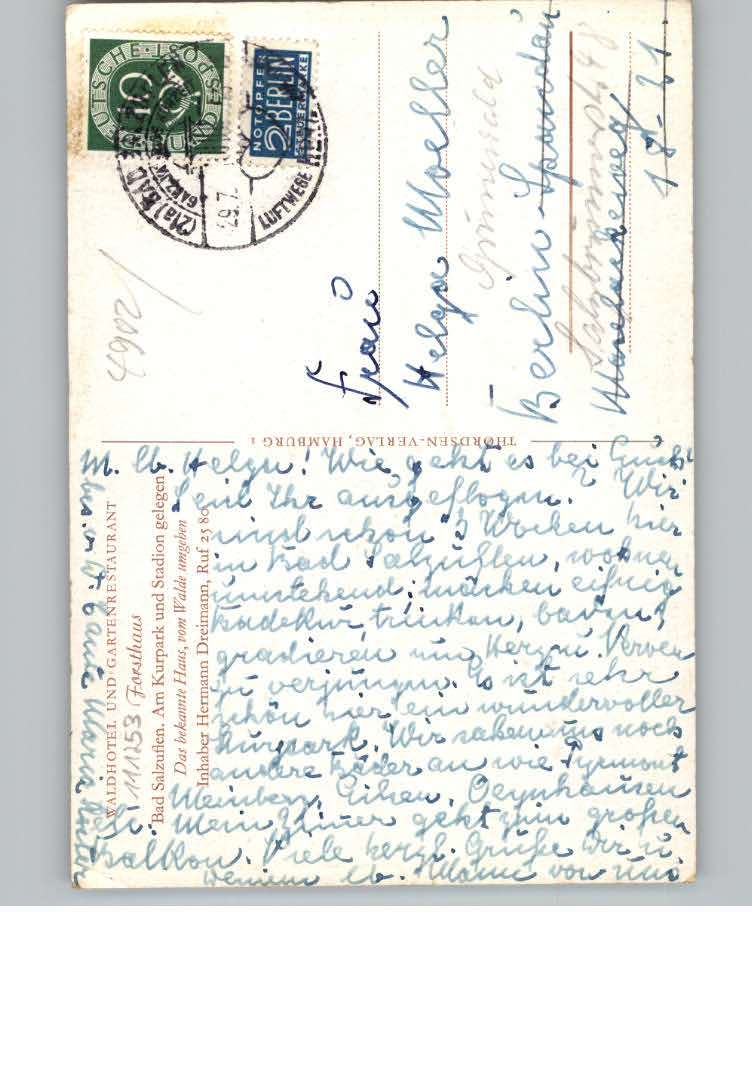 DEUTSCHE BUNDESPOST
NOTOPFER
2 BERLIN
STEUERMARKE
(21a) BAD
29.7.
LUFTWEGE
20617
Frau
Helga Moeller
Grunewald
Berlin-Spandau
Salzbrunnerst 48
18-21
THORDSEN-VERLAG, HAMBURG 1
WALDHOTEL UND GARTENRESTAURANT
Forsthaus
111253
Bad Salzuflen. Am Kurpark und Stadion gelegen
Das bekannte Haus, vom Walde umgeben
Inhaber Hermann Dreimann, Ruf 2580
M. lb. Helga! Wie geht es bei Euch?
Seid Ihr ausgeflogen. Wir
sind schon 3 Wochen hier
in Bad Salzuflen, wohnen
umstehend, machen eifrig
Badekur trinken, baden,
gradieren um Herz u. Nerven
zu verjüngen. Es ist sehr
schön hier ein wundervoller
Kurpark. Wir sahen uns noch
andere Bäder an wie Pyrmont
Meinberg, Eilsen, Oeynhausen
Mein Zimmer geht zum großen
Balkon. Viele herzl. Grüße Dir u.
Deinem lb. Mann von uns
Tante Maria